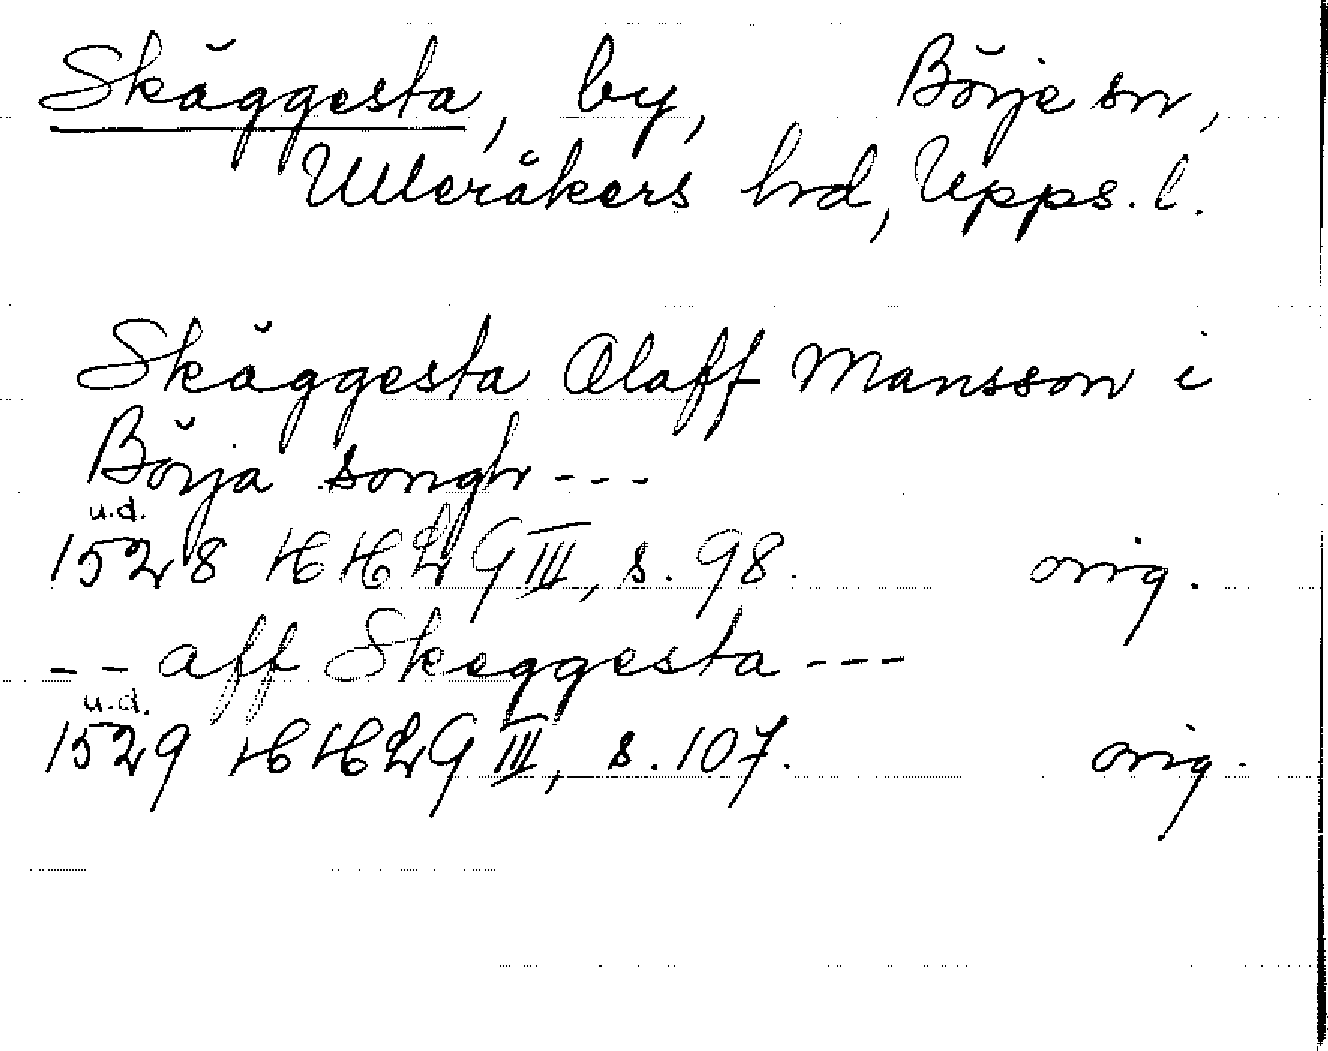 Skäggesta, by, Börje sn,
Ulleråkers hd, Upps. l.
Skäggesta Olaff Mansson i
Börja songh ---
u.d.
1528 HH 29 III, s. 98. orig.
-- aff Skeggesta ---
u.d.
1529 HH 29 III, s. 107. orig.